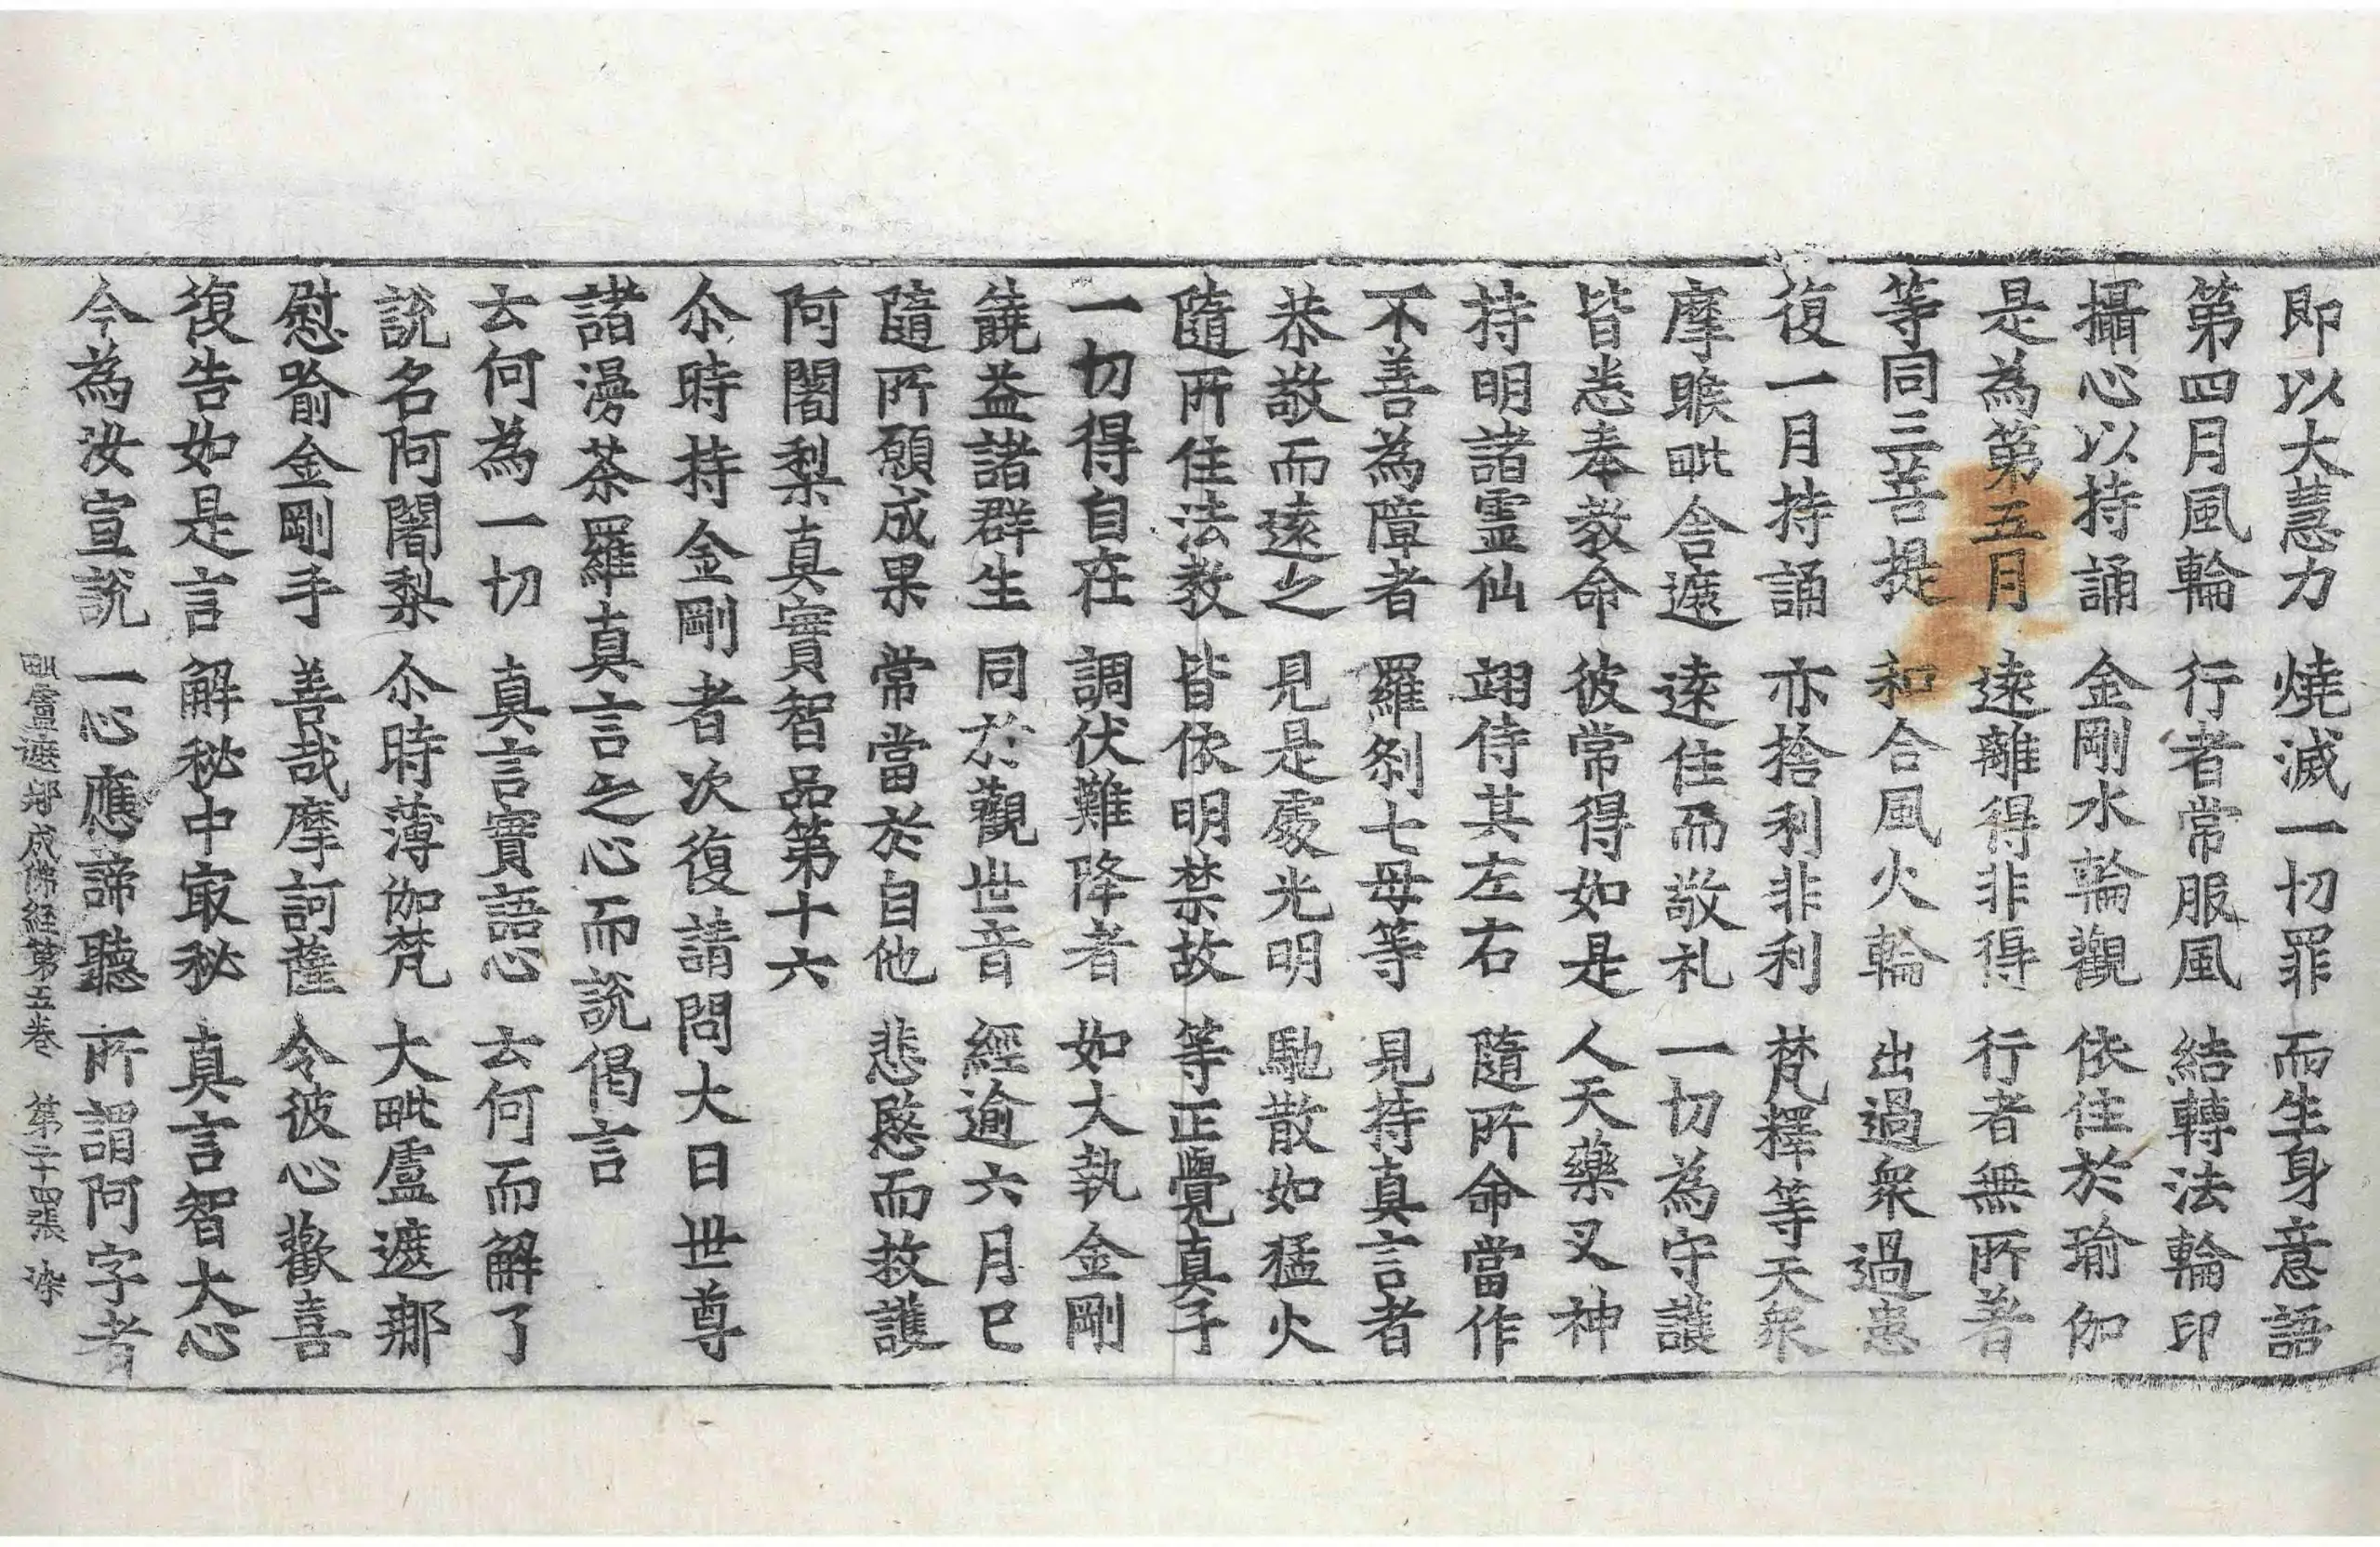 即以大慧力　燒滅一切罪　而生身意語
第四月風輪　行者常服風　結轉法輪印
攝心以持誦　金剛水輪觀　依住於瑜伽
是為第五月　遠離得非得　行者無所著
等同三菩提　和合風火輪　出過衆過患
復一月持誦　亦捨利非利　梵釋等天衆
摩睺毗舍遮　遠住而敬礼　一切為守護
皆悉奉教命　彼常得如是　人天藥叉神
持明諸霊仙　翊侍其左右　隨所命當作
不善為障者　羅剎七母等　見持真言者
恭敬而遠之　見是處光明　馳散如猛火
隨所住法教　皆依明禁故　等正覺真子
一切得自在　調伏難降者　如大執金剛
饒益諸群生　同於觀世音　經逾六月已
隨所願成果　常當於自他　悲愍而救護
阿闍梨真實智品第十六
尒時持金剛者次復請問大日世尊
諸漫荼羅真言之心而說偈言
云何為一切　真言實語心　云何而解了
說名阿闍梨　尒時薄伽梵　大毗盧遮那
慰喻金剛手　善哉摩訶薩　令彼心歡喜
復告如是言　解秘中㝡秘　真言智大心
今為汝宣說　一心應諦聽　所謂阿字者
毗盧遮那成佛経第五巻　第二十四張　染